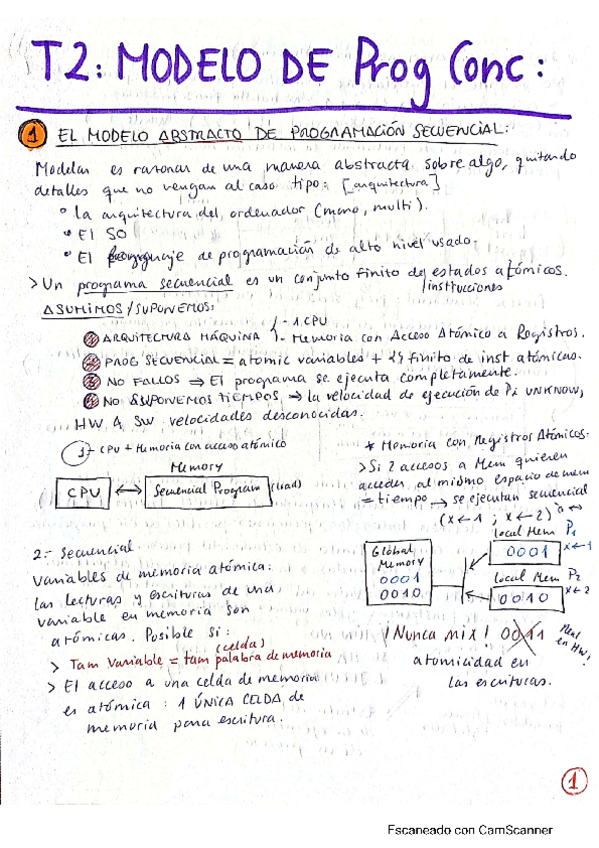 T2: MODELO DE Prog Conc:
1 EL MODELO ABSTRACTO DE PROGRAMACIÓN SECUENCIAL:
Modelar es razonar de una manera abstracta sobre algo, quitando
detalles que no vengan al caso tipo: [arquitectura]
• La arquitectura del ordenador (mono, multi).
• El SO
• El lenguaje de programación de alto nivel usado.
> Un programa secuencial es un conjunto finito de estados atómicos.
/instrucciones
ASUMIMOS / SUPONEMOS:
ARQUITECTURA MÁQUINA { - 1 CPU
- Memoria con Acceso Atómico a Registros.
PROG SECUENCIAL = atomic variables + finito de inst atómicas.
NO FALLOS ⇒ El programa se ejecuta completamente.
NO SUPONEMOS TIEMPOS, → la velocidad de ejecución de Pi UNKNOW,
HW & SW velocidades desconocidas.
1- CPU + Memoria con acceso atómico
Memory
CPU ↔ Secuencial Program (load)
* Memoria con Registros Atómicos:
> Si 2 accesos a Mem quieren
acceder al mismo espacio de mem
= tiempo → se ejecutan secuencial
(x ← 1 ; x ← 2) o ↔
2.- Secuencial
Variables de memoria atómica:
las lecturas y escrituras de una
variable en memoria son
atómicas. Posible si:
(celda)
> Tam Variable = tam palabra de memoria
> El acceso a una celda de memoria
es atómica : 1 ÚNICA CELDA de
memoria para escritura.
Global
Memory
0001
0010
local Mem P1
0001 x ← 1
local Mem P2
0010 x ← 2
¡Nunca mix! 0011
en HW!
atomicidad en
las escrituras.
1
Escaneado con CamScanner